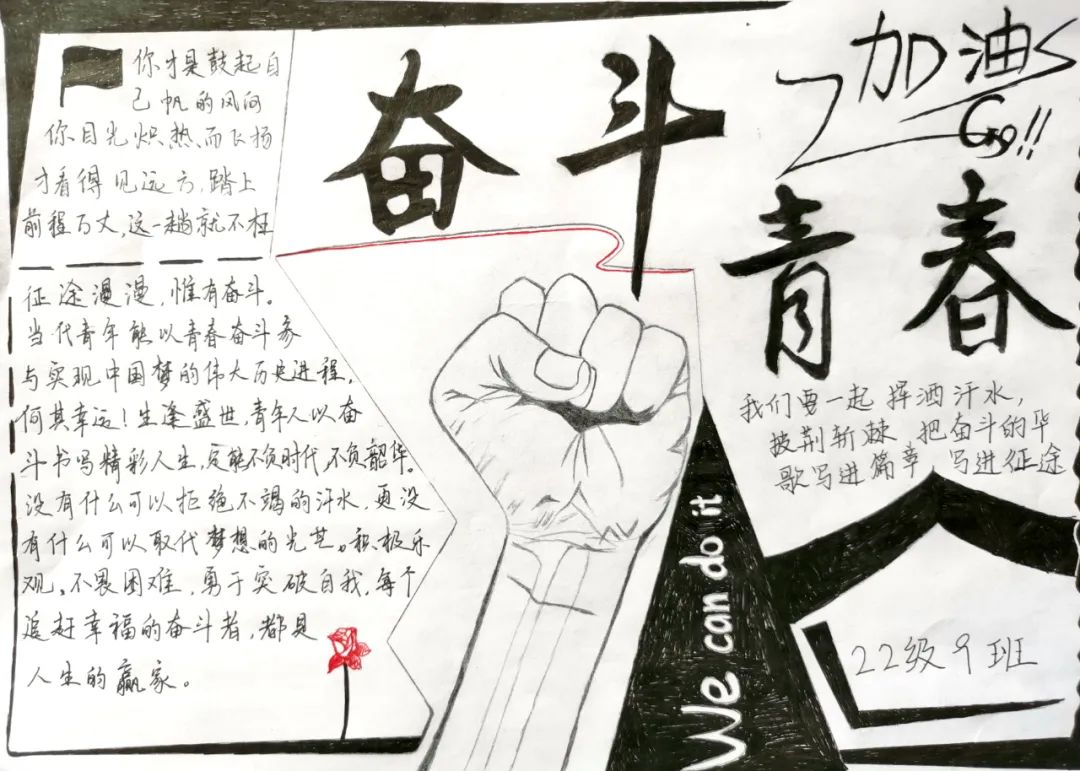 奋斗
青春
加油
Go!!
你才是鼓起自
己帆的风向
你目光炽热而飞扬
才看得见远方,踏上
前程万丈,这一趟就不枉
征途漫漫,惟有奋斗。
当代青年能以青春奋斗参
与实现中国梦的伟大历史进程,
何其幸运!生逢盛世,青年人以奋
斗书写精彩人生,定能不负时代,不负韶华。
没有什么可以拒绝不竭的汗水,更没
有什么可以取代梦想的光芒。积极乐
观,不畏困难,勇于突破自我,每个
追赶幸福的奋斗者,都是
人生的赢家。
我们要一起挥洒汗水,
披荆斩棘 把奋斗的华
歌写进篇章 写进征途
We can do it
22级9班